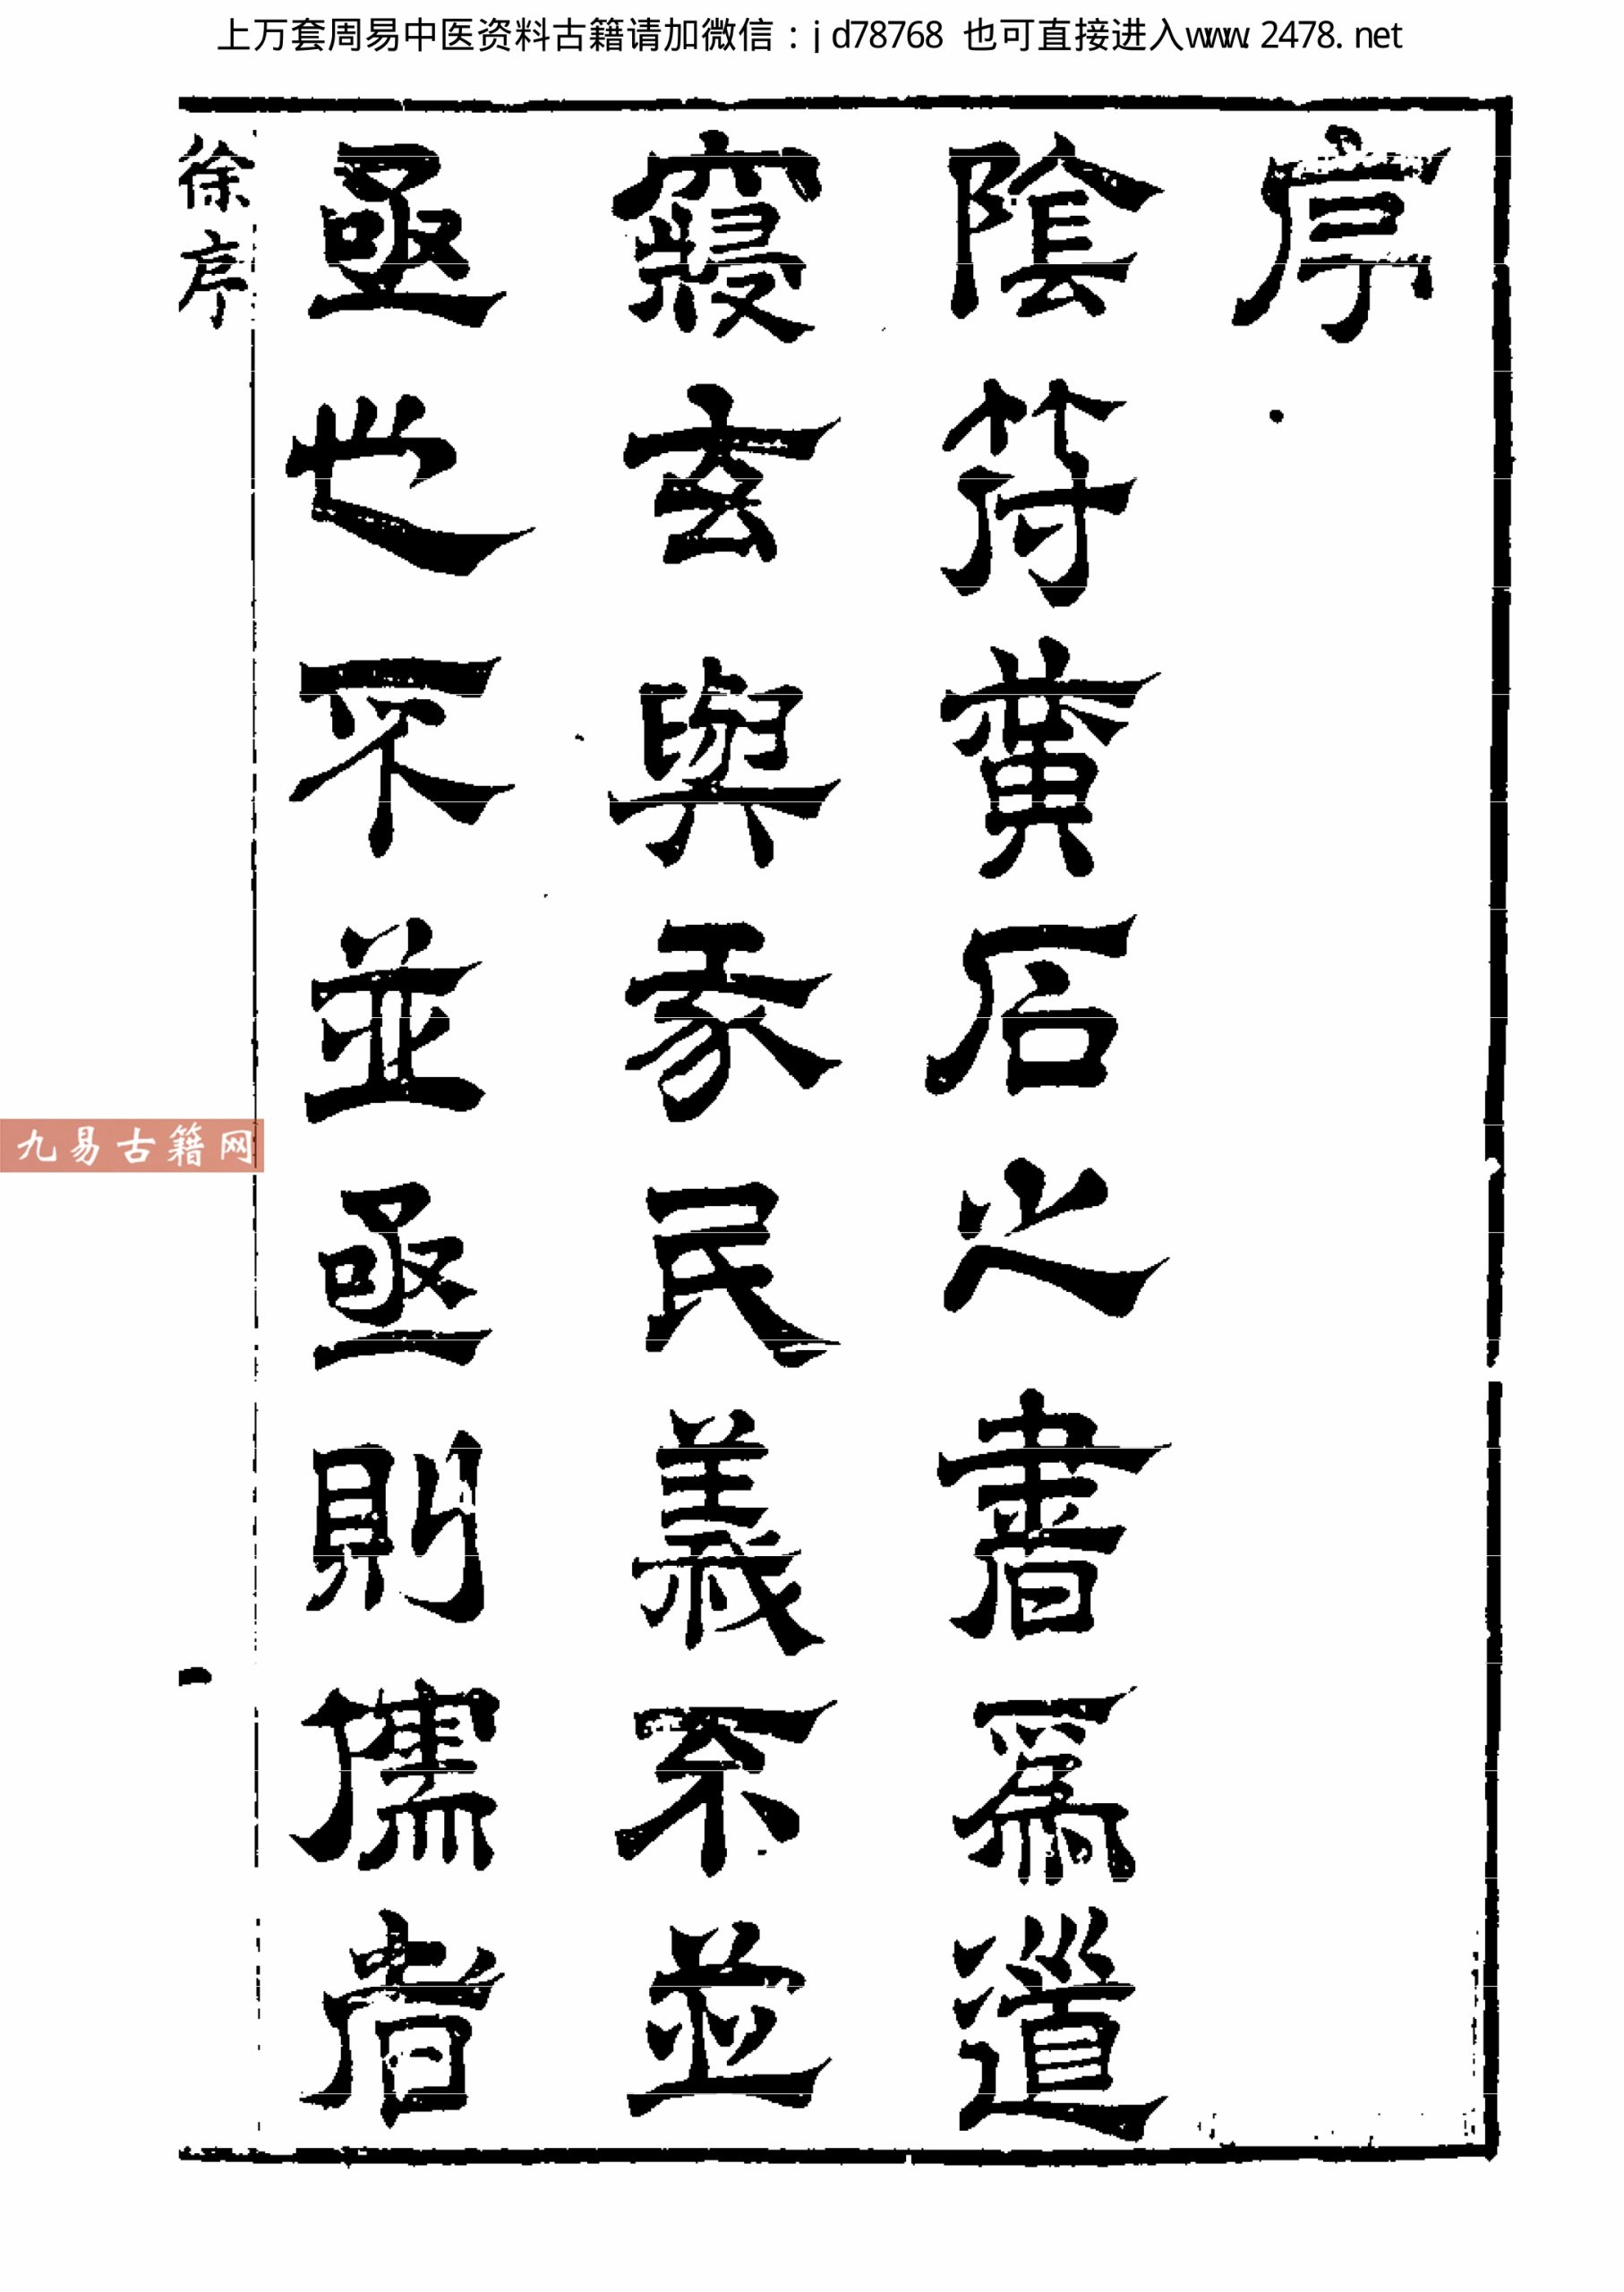 上万套周易中医资料古籍请加微信：jd78768 也可直接进入www.2478.net
序
陰符黃石之書爲道
寢玄與豕民義不並
亟也不並亟則儒者
徐序
一
九易古籍网